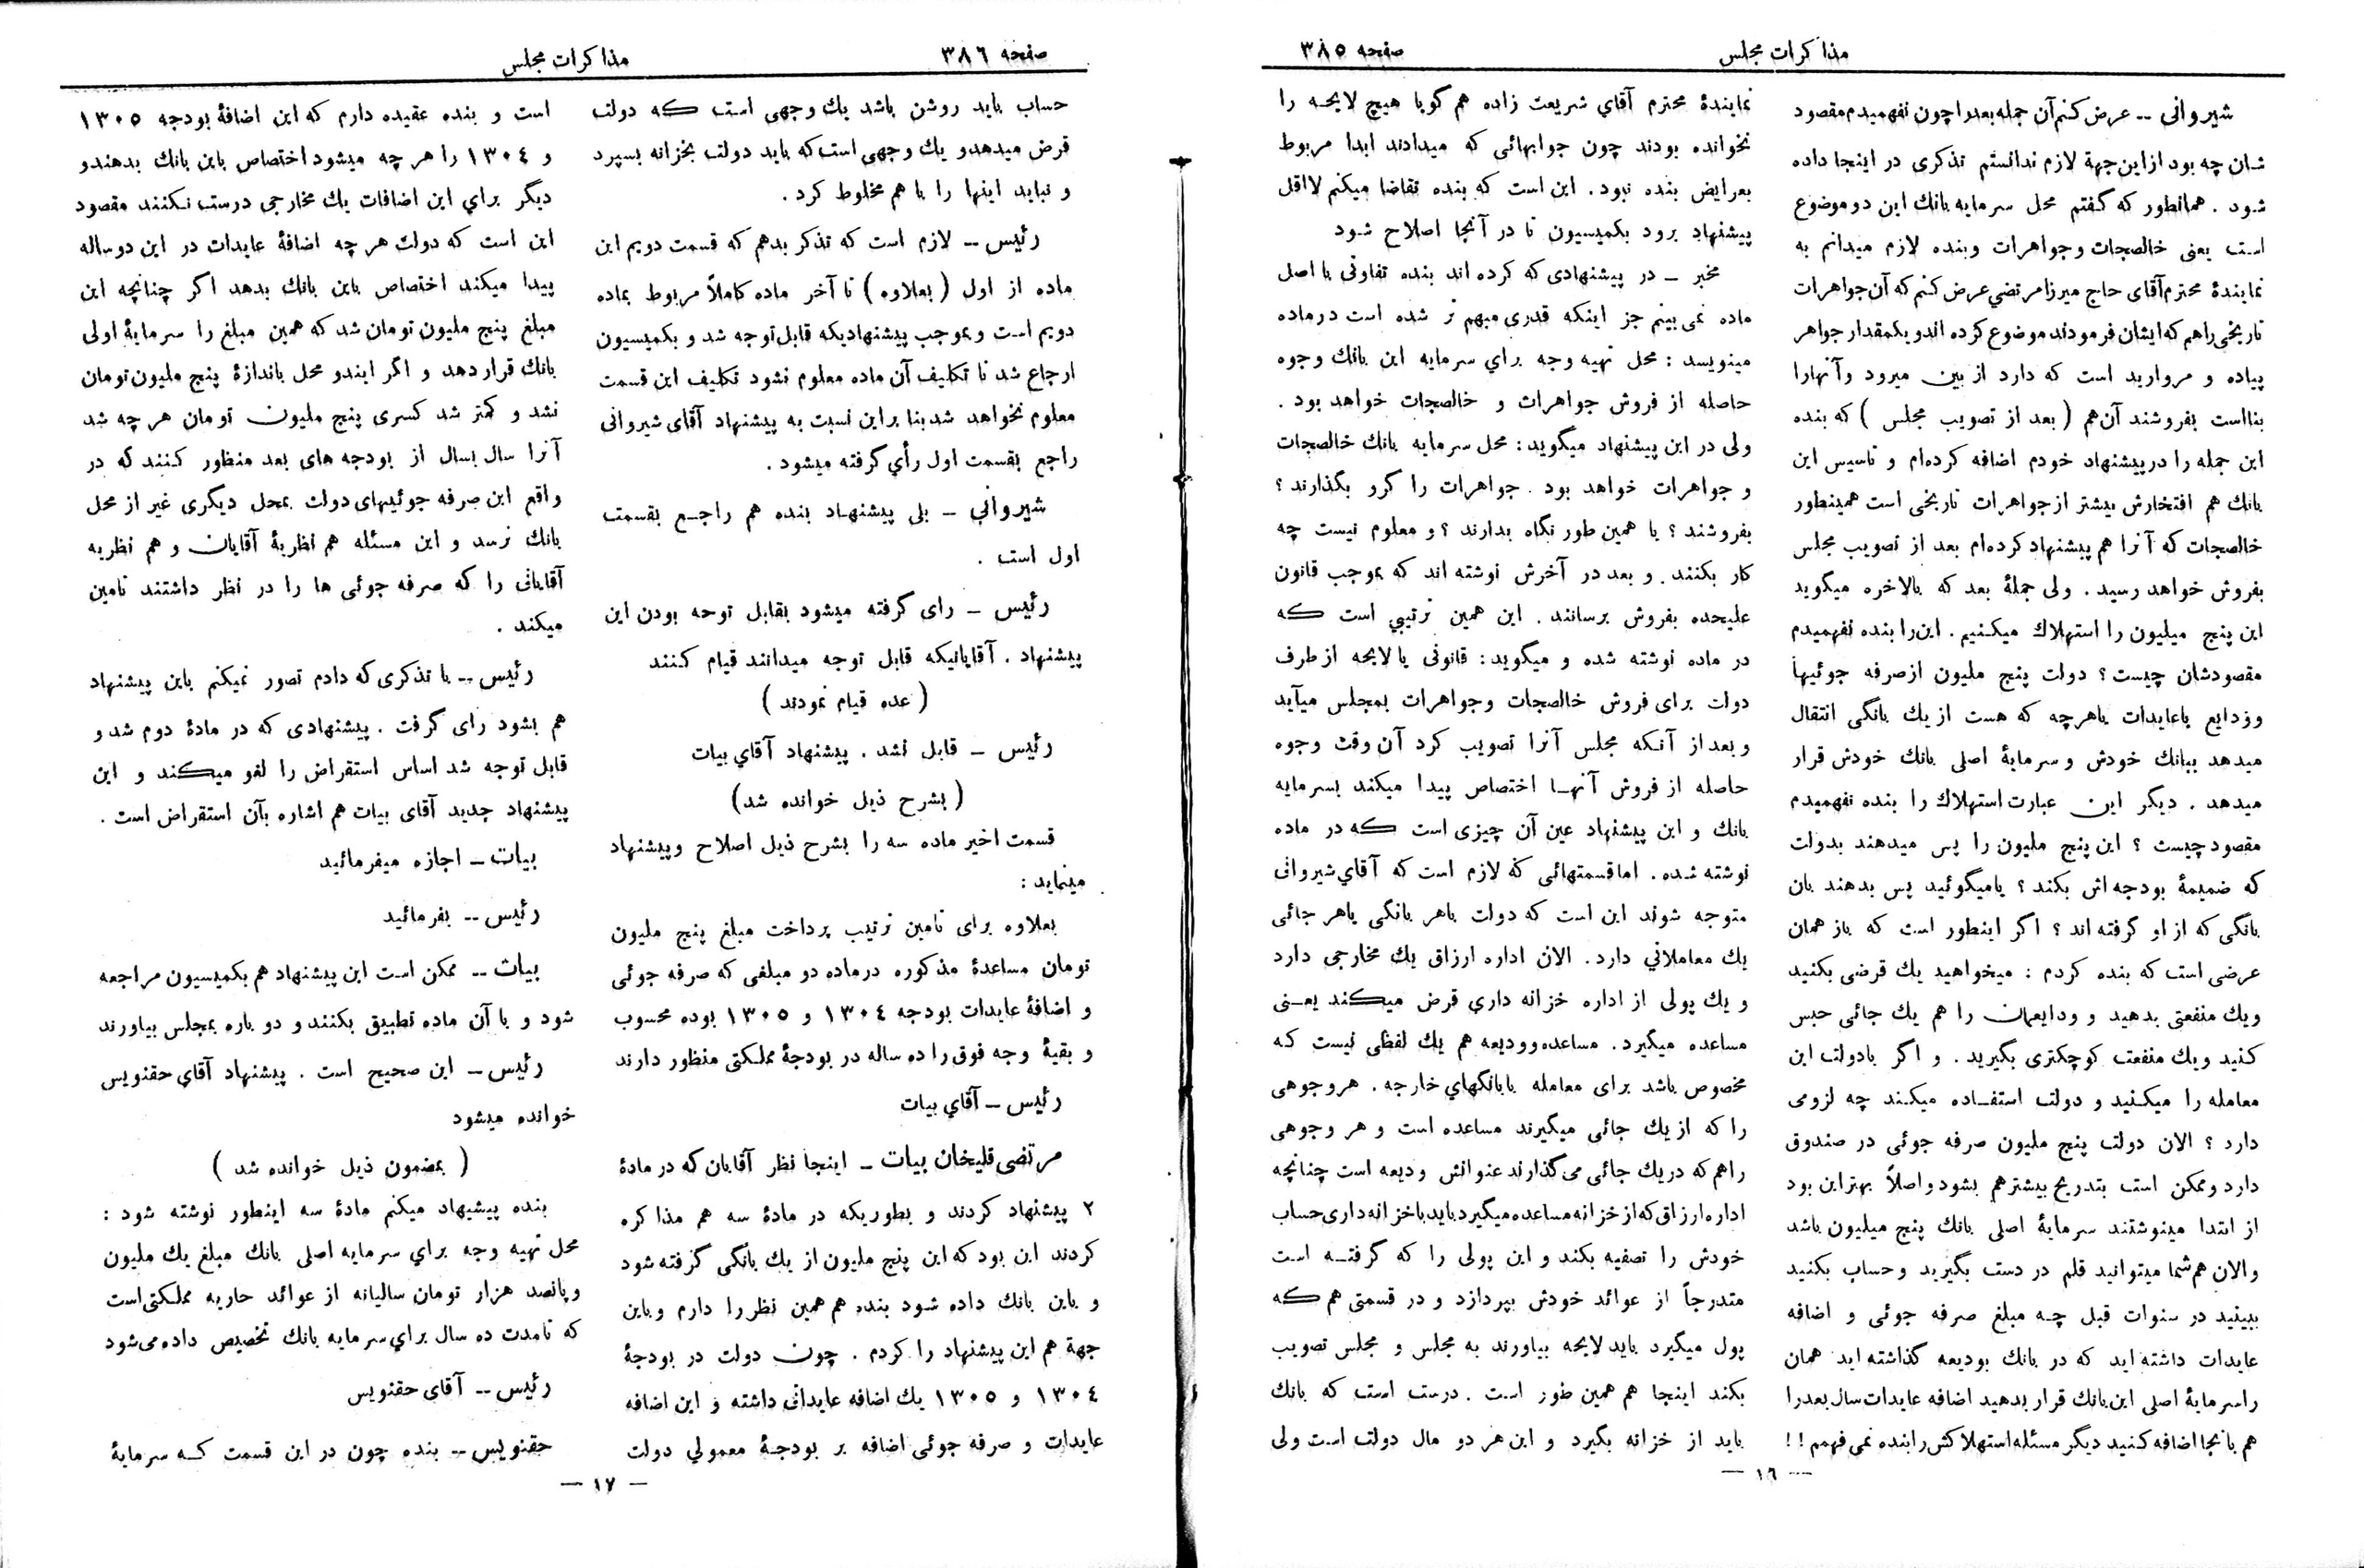 مذاکرات مجلس
صفحه ۳۸۵
شیروانی -- عرض کنم آن جمله بعد را چون نفهمیدم مقصود
شان چه بود از این جهة لازم ندانستم تذکری در اینجا داده
شود . همانطور که گفتم محل سرمایه بانك این دو موضوع
است یعنی خالصجات و جواهرات و بنده لازم میدانم به
نمایندهٔ محترم آقای حاج میرزا مرتضی عرض کنم که آن جواهرات
تاریخی را هم که ایشان فرمودند موضوع کرده اند و یکمقدار جواهر
پیاده و مروارید است که دارد از بین میرود و آنهارا
بنااست بفروشند آن هم ( بعد از تصویب مجلس ) که بنده
این جمله را در پیشنهاد خودم اضافه کرده‌ام و تاسیس این
بانك هم افتخارش بیشتر از جواهرات تاریخی است همینطور
خالصجات که آنرا هم پیشنهاد کرده‌ام بعد از تصویب مجلس
بفروش خواهد رسید . ولی جملهٔ بعد که بالاخره میگوید
این پنج میلیون را استهلاك میکنیم . این را بنده نفهمیدم
مقصودشان چیست ؟ دولت پنج ملیون از صرفه جوئیها
وودایع یاعایدات یاهرچه که هست از یك بانگی انتقال
میدهد ببانك خودش و سرمایهٔ اصلی بانك خودش قرار
میدهد . دیگر این عبارت استهلاك را بنده نفهمیدم
مقصود چیست ؟ این پنج ملیون را پس میدهند بدولت
که ضمیمهٔ بودجه اش بکند ؟ یامیگوئید پس بدهند بان
بانگی که از او گرفته اند ؟ اگر اینطور است که باز همان
عرضی است که بنده کردم : میخواهید یك قرضی بکنید
ویك منفعتی بدهید و ودایعمان را هم یك جائی حبس
کنید ویك منفعت کوچکتری بگیرید . و اگر بادولت این
معامله را میکنید و دولت استفاده میکند چه لزومی
دارد ؟ الان دولت پنج ملیون صرفه جوئی در صندوق
دارد وممکن است بتدریج بیشترهم بشود و اصلاً بهتر این بود
از ابتدا مینوشتند سرمایهٔ اصلی بانك پنج میلیون باشد
والان هم شما میتوانید قلم در دست بگیرید و حساب بکنید
ببینید در سنوات قبل چه مبلغ صرفه جوئی و اضافه
عایدات داشته اید که در بانك بودیعه گذاشته اید همان
راسرمایهٔ اصلی این بانك قرار بدهید اضافه عایدات سال بعد را
هم بانجا اضافه کنید دیگر مسئله استهلاکش را بنده نمی فهمم ! !
نمایندهٔ محترم آقاي شریعت زاده هم گویا هیچ لایحه را
نخوانده بودند چون جوابهائی که میدادند ابدا مربوط
بعرایض بنده نبود . این است که بنده تقاضا میکنم لااقل
پیشنهاد برود بکمیسیون تا در آنجا اصلاح شود
مخبر – در پیشنهادی که کرده اند بنده تفاوتی با اصل
ماده نمی بینم جز اینکه قدری مبهم تر شده است درماده
مینویسد : محل تهیه وجه براي سرمایه این بانك وجوه
حاصله از فروش جواهرات و خالصجات خواهد بود .
ولی در این پیشنهاد میگوید : محل سرمایه بانك خالصجات
و جواهرات خواهد بود . جواهرات را کرو بگذارند ؟
بفروشند ؟ یا همین طور نگاه بدارند ؟ و معلوم نیست چه
کار بکنند . و بعد در آخرش نوشته اند که بموجب قانون
علیحده بفروش برسانند . این همین ترتیبي است که
در ماده نوشته شده و میگوید : قانونی یا لایحه از طرف
دولت برای فروش خالصجات وجواهرات بمجلس میآید
و بعد از آنکه مجلس آنرا تصویب کرد آن وقت وجوه
حاصله از فروش آنها اختصاص پیدا میکند بسرمایه
بانك و این پیشنهاد عین آن چیزی است که در ماده
نوشته شده . اما قسمتهائی که لازم است که آقاي شیروانی
متوجه شوند این است که دولت باهر بانگی یاهر جائی
یك معاملاتي دارد . الان اداره ارزاق یك مخارجی دارد
و یك پولی از اداره خزانه داري قرض میکند یعنی
مساعده میگیرد . مساعده وودیعه هم یك لفظی نیست که
مخصوص باشد برای معامله بابانگهاي خارجه . هر وجوهی
را که از یك جائی میگیرند مساعده است و هر وجوهی
راهم که در یك جائی می گذارند عنوانش ودیعه است چنانچه
اداره ارزاق که از خزانه مساعده میگیرد باید با خزانه داری حساب
خودش را تصفیه بکند و این پولی را که گرفته است
متدرجاً از عوائد خودش بپردازد و در قسمتی هم که
پول میگیرد باید لایحه بیاورند به مجلس و مجلس تصویب
بکند اینجا هم همین طور است . درست است که بانك
باید از خزانه بگیرد و این هر دو مال دولت است ولی
-- ۱٦ --
صفحه ۳۸٦
مذاکرات مجلس
حساب باید روشن باشد یك وجهی است که دولت
قرض میدهدو یك وجهی است که باید دولت بخزانه بسپرد
و نباید اینها را با هم مخلوط کرد .
رئیس -- لازم است که تذکر بدهم که قسمت دویم این
ماده از اول ( بعلاوه ) تا آخر ماده کاملاً مربوط بماده
دویم است و بموجب پیشنهادیکه قابل توجه شد و بکمیسیون
ارجاع شد تا تکلیف آن ماده معلوم نشود تکلیف این قسمت
معلوم نخواهد شد بنا براین نسبت به پیشنهاد آقای شیروانی
راجع بقسمت اول رأي گرفته میشود .
شیرواني – بلی پیشنهاد بنده هم راجع بقسمت
اول است .
رئیس – رای گرفته میشود بقابل توحه بودن این
پیشنهاد . آقایانیکه قابل توجه میدانند قیام کنند
( عده قیام نمودند )
رئیس – قابل نشد . پیشنهاد آقاي بیات
( بشرح ذیل خوانده شد )
قسمت اخیر ماده سه را بشرح ذیل اصلاح وپیشنهاد
مینماید :
بعلاوه برای تامین ترتیب پرداخت مبلغ پنج ملیون
تومان مساعدهٔ مذکوره درماده دو مبلغی که صرفه جوئی
و اضافهٔ عایدات بودجه ۱۳۰٤ و ۱۳۰۵ بوده محسوب
و بقیهٔ وجه فوق را ده ساله در بودجهٔ مملکتی منظور دارند
رئیس – آقاي بیات
مرتضی قلیخان بیات – اینجا نظر آقایان که در مادهٔ
۲ پیشنهاد کردند و بطوریکه در مادهٔ سه هم مذاکره
کردند این بود که این پنج ملیون از یك بانگی گرفته شود
و باین بانك داده شود بنده هم همین نظر را دارم وباین
جهة هم این پیشنهاد را کردم . چون دولت در بودجهٔ
۱۳۰٤ و ۱۳۰۵ یك اضافه عایداتی داشته و این اضافه
عایدات و صرفه جوئی اضافه بر بودجهٔ معمولي دولت
است و بنده عقیده دارم که این اضافهٔ بودجه ۱۳۰۵
و ۱۳۰٤ را هر چه میشود اختصاص باین بانك بدهندو
دیگر براي این اضافات یك مخارجی درست نکنند مقصود
این است که دولت هر چه اضافهٔ عایدات در این دوساله
پیدا میکند اختصاص باین بانك بدهد اگر چنانچه این
مبلغ پنج ملیون تومان شد که همین مبلغ را سرمایهٔ اولی
بانك قرار دهد و اگر ایندو محل باندازهٔ پنج ملیون تومان
نشد و کمتر شد کسری پنج ملیون تومان هر چه شد
آنرا سال بسال از بودجه های بعد منظور کنند که در
واقع این صرفه جوئیهای دولت بمحل دیگری غیر از محل
بانك نرسد و این مسئله هم نظریهٔ آقایان و هم نظریه
آقایانی را که صرفه جوئی ها را در نظر داشتند تامین
میکند .
رئیس -- با تذکری که دادم تصور نمیکنم باین پیشنهاد
هم بشود رای گرفت . پیشنهادی که در مادهٔ دوم شد و
قابل توجه شد اساس استقراض را لغو میکند و این
پیشنهاد جدید آقای بیات هم اشاره بآن استقراض است .
بیات – اجازه میفرمائید
رئیس -- بفرمائید
بیات -- ممکن است این پیشنهاد هم بکمیسیون مراجعه
شود و با آن ماده تطبیق بکنند و دو باره بمجلس بیاورند
رئیس – این صحیح است . پیشنهاد آقاي حقنویس
خوانده میشود
( بمضمون ذیل خوانده شد )
بنده پیشیهاد میکنم مادهٔ سه اینطور نوشته شود :
محل تهیه وجه براي سرمایه اصلی بانك مبلغ یك ملیون
وپانصد هزار تومان سالیانه از عوائد جاریه مملکتی است
که تامدت ده سال براي سرمایه بانك تخصیص داده می شود
رئیس -- آقای حقنویس
حقنویس -- بنده چون در این قسمت که سرمایهٔ
— ۱۷ —